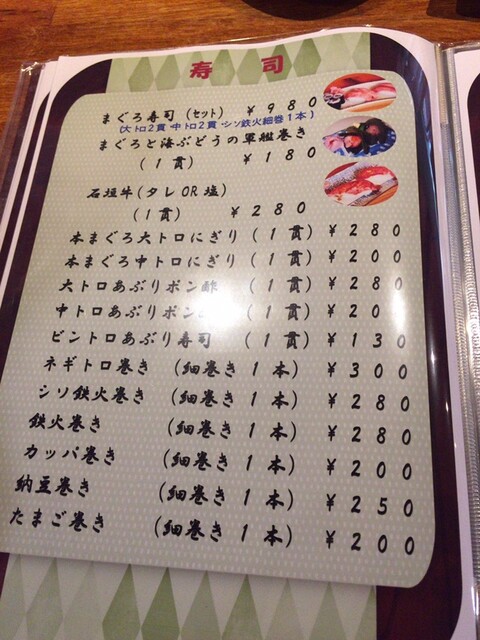 寿司
まぐろ寿司(セット) ¥980
(大トロ2貫 中トロ2貫 シソ鉄火細巻1本)
まぐろと海ぶどうの軍艦巻き
(1貫) ¥180
石垣牛(タレOR塩)
(1貫) ¥280
本まぐろ大トロにぎり(1貫) ¥280
本まぐろ中トロにぎり(1貫) ¥200
大トロあぶりポン酢(1貫) ¥280
中トロあぶりポン (1貫) ¥200
ビントロあぶり寿司(1貫) ¥130
ネギトロ巻き (細巻き1本) ¥300
シソ鉄火巻き (細巻き1本) ¥280
鉄火巻き (細巻き1本) ¥280
カッパ巻き (細巻き1本) ¥200
納豆巻き (細巻き1本) ¥250
たまご巻き (細巻き1本) ¥200